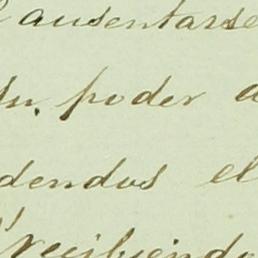 ausentarse
su poder a
dendos el
recibiendo